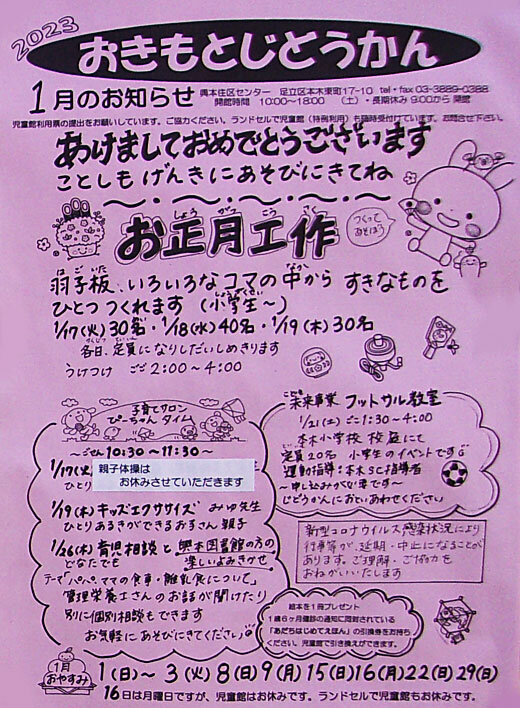 2023
おきもとじどうかん
1月のお知らせ
興本住区センター 足立区本木東町17-10 tel・fax 03-3889-0388
開館時間 10:00〜18:00 (土)・長期休み 9:00から 開館
児童館利用票の提出をお願いしています。ご協力ください。ランドセルで児童館(特例利用)も臨時受付けています。お問合せ下さい。
あけましておめでとうございます
ことしも げんきに あそびにきてね
お正月工作
しょう がつ こう さく
つくって
あそぼう
羽子板、いろいろな コマの 中から すきなものを
は ご いた
なか
ひとつ つくれます (小学生〜)
しょうがくせい
1/17(火)30名・1/18(水)40名・1/19(木)30名
各日、定員に なりしだい しめきります
うけつけ ごご 2:00〜4:00
子育てサロン
ぴーちゃん タイム
〜ごぜん 10:30〜11:30〜
1/17(火)
親子体操は
お休みさせていただきます
1/19(木) キッズエクササイズ みゆ先生
ひとりあるきができるお子さん 親子
1/26(木) 育児相談と 興本図書館の方の
どなたでも 楽しいよみきかせ
テーマ「パパ、ママの食事・離乳食について」
管理栄養士さんの お話が聞けたり
別に個別相談もできます
お気軽に あそびにきてください
未来事業 フットサル教室
1/21(土) ごご 1:30〜4:00
本木小学校 校庭にて
定員20名 小学生のイベントです
運動指導:本木SC指導者
〜申し込みがひつ要です〜
じどうかんに おといあわせください
新型コロナウイルス感染状況により
行事等が、延期・中止になることがあ
ります。ご理解・ご協力を
おねがいいたします
絵本を1冊プレゼント
1歳6ヶ月健診の通知に同封されている
「あだちはじめてえほん」の引換券をお持ち
ください。児童館で引き換えができます。
1月
おやすみ
1(日)〜3(火)8(日)9(月)15(日)16(月)22(日)29(日)
16日は月曜日ですが、児童館はお休みです。ランドセルで児童館もお休みです。